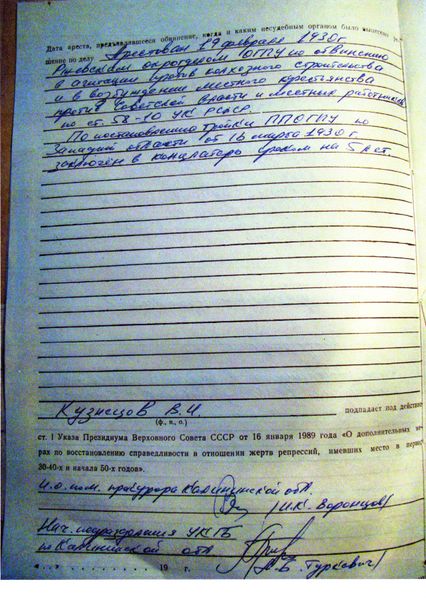 Дата ареста, предъявлявшееся обвинение, когда и каким несудебным органом было вынесено ре-
шение по делу Арестован 19 февраля 1930 г
Ржевским окротделом ОГПУ по обвинению
в агитации против колхозного строительства
и в возбуждении местного крестьянства
против Советской власти и местных работников
по ст. 58-10 УК РСФСР.
По постановлению тройки ПП ОГПУ по
Западной области от 16 марта 1930 г.
заключен в концлагерь сроком на 5 лет.
Кузнецов В.И. подпадает под действие
(ф., и., о.)
ст. 1 Указа Президиума Верховного Совета СССР от 16 января 1989 года «О дополнительных ме-
рах по восстановлению справедливости в отношении жертв репрессий, имевших место в период
30-40-х и начала 50-х годов».
И.о. пом. прокурора Калининской обл.
(И.К. Воронцов)
Нач. подразделения УКГБ
по Калининской обл.
Туркевич)
« » 19 г.